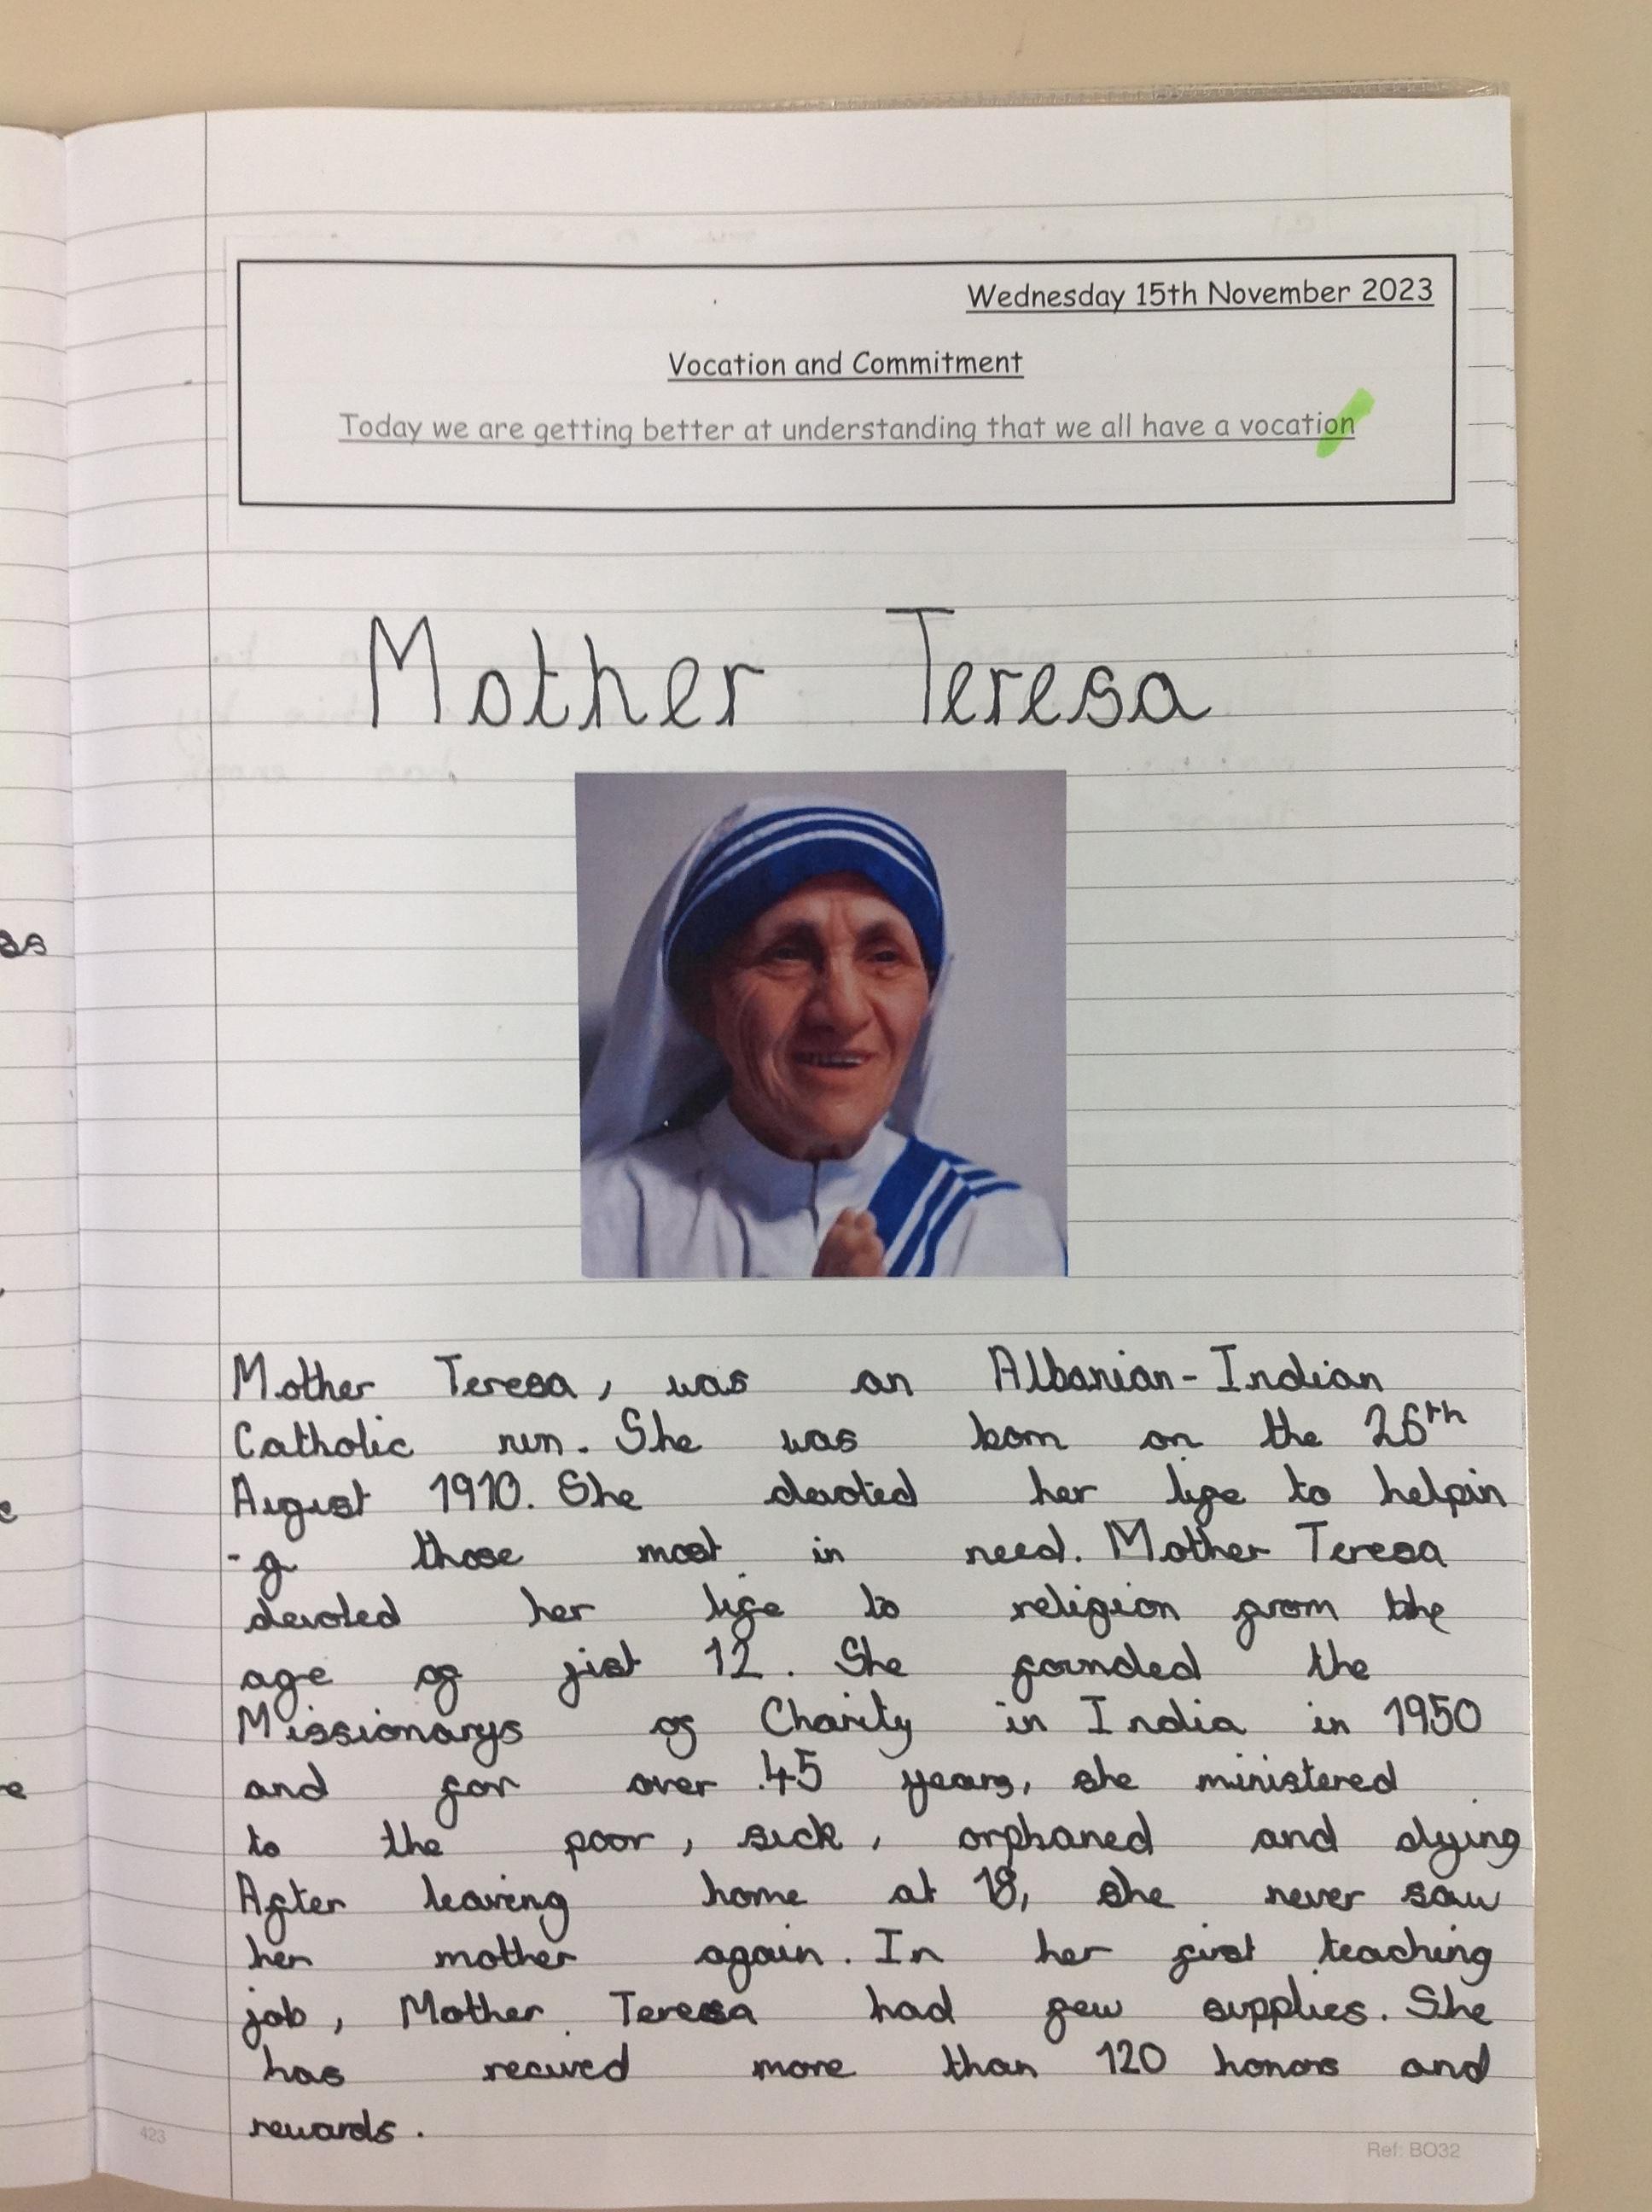 Wednesday 15th November 2023
Vocation and Commitment
Today we are getting better at understanding that we all have a vocation
Mother Teresa
Mother Teresa, was an Albanian-Indian
Catholic nun. She was born on the 26th
August 1910. She devoted her life to helpin
-g those most in need. Mother Teresa
devoted her life to religion from the
age of just 12. She founded the
Missionarys of Charity in India in 1950
and for over 45 years, she ministered
to the poor, sick, orphaned and dying
After leaving home at 18, she never saw
her mother again. In her first teaching
job, Mother Teresa had few supplies. She
has recived more than 120 honors and
rewards.
as
e
e
423
Ref: BO32